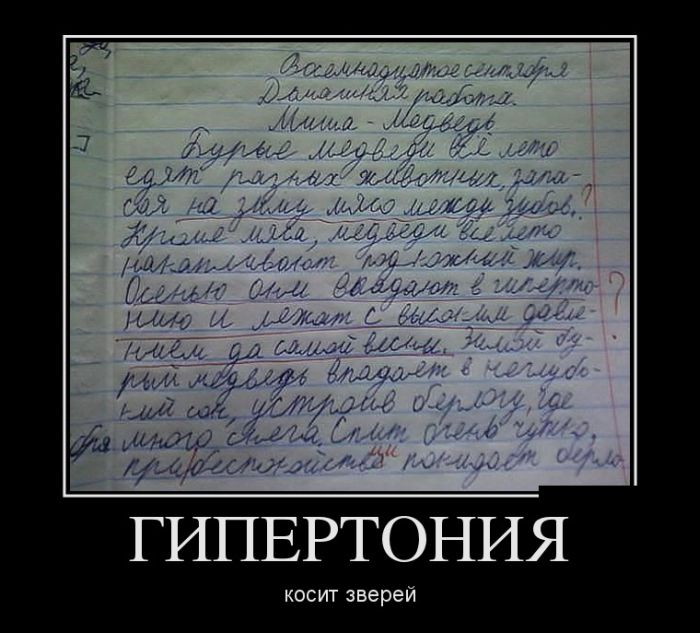 Восемнадцатое сентября
Домашняя работа.
Миша - Медведь
Бурые медведи всё лето
едят разных животных, запа-
сая на зиму мясо между зубов. ?
Кроме мяса, медведи всё лето
накапливают подкожный жир.
Осенью они впадают в гиперто- ?
нию и лежат с высоким давле-
нием до самой весны. Зимой бу-
рый медведь впадает в неглубо-
кий сон, устроив берлогу, где
много снега. Спит очень чутко,
при беспокойстве покидает берло
ГИПЕРТОНИЯ
косит зверей